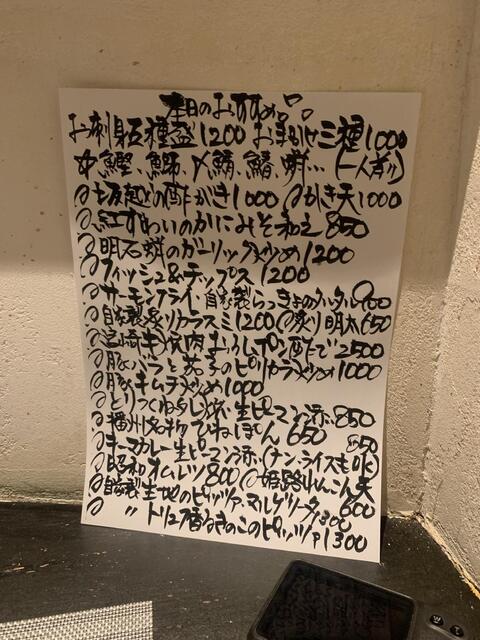 本日のおすすめ
お刺身五種盛1200 お手軽三種1000
鰹、鰤、〆鯖、鰆、蛸… (一人前〜)
坂越の酢がき1000 かき天1000
紅ずわいのかにみそ和え850
明石蛸のガーリック炒め1200
フィッシュ&チップス1200
サーモンフライ・自家製らっきょのタルタル900
自家製炙りカラスミ1200 炙り明太650
宮崎牛焼肉おろしポン酢で2500
豚バラと茄子のピリカラ炒め1000
豚キムチ炒め1000
とりつくねらし焼・生ピーマン添850
播州名物ひねぽん650
キーマカレー生ピーマン添(ナン・ライスもOK) 850
昭和オムレツ800 姫路れんこん天600
自家製生地のピッツァ、マルゲリータ1300
〃 トリュフ香るきのこのピッツァ1300
W T